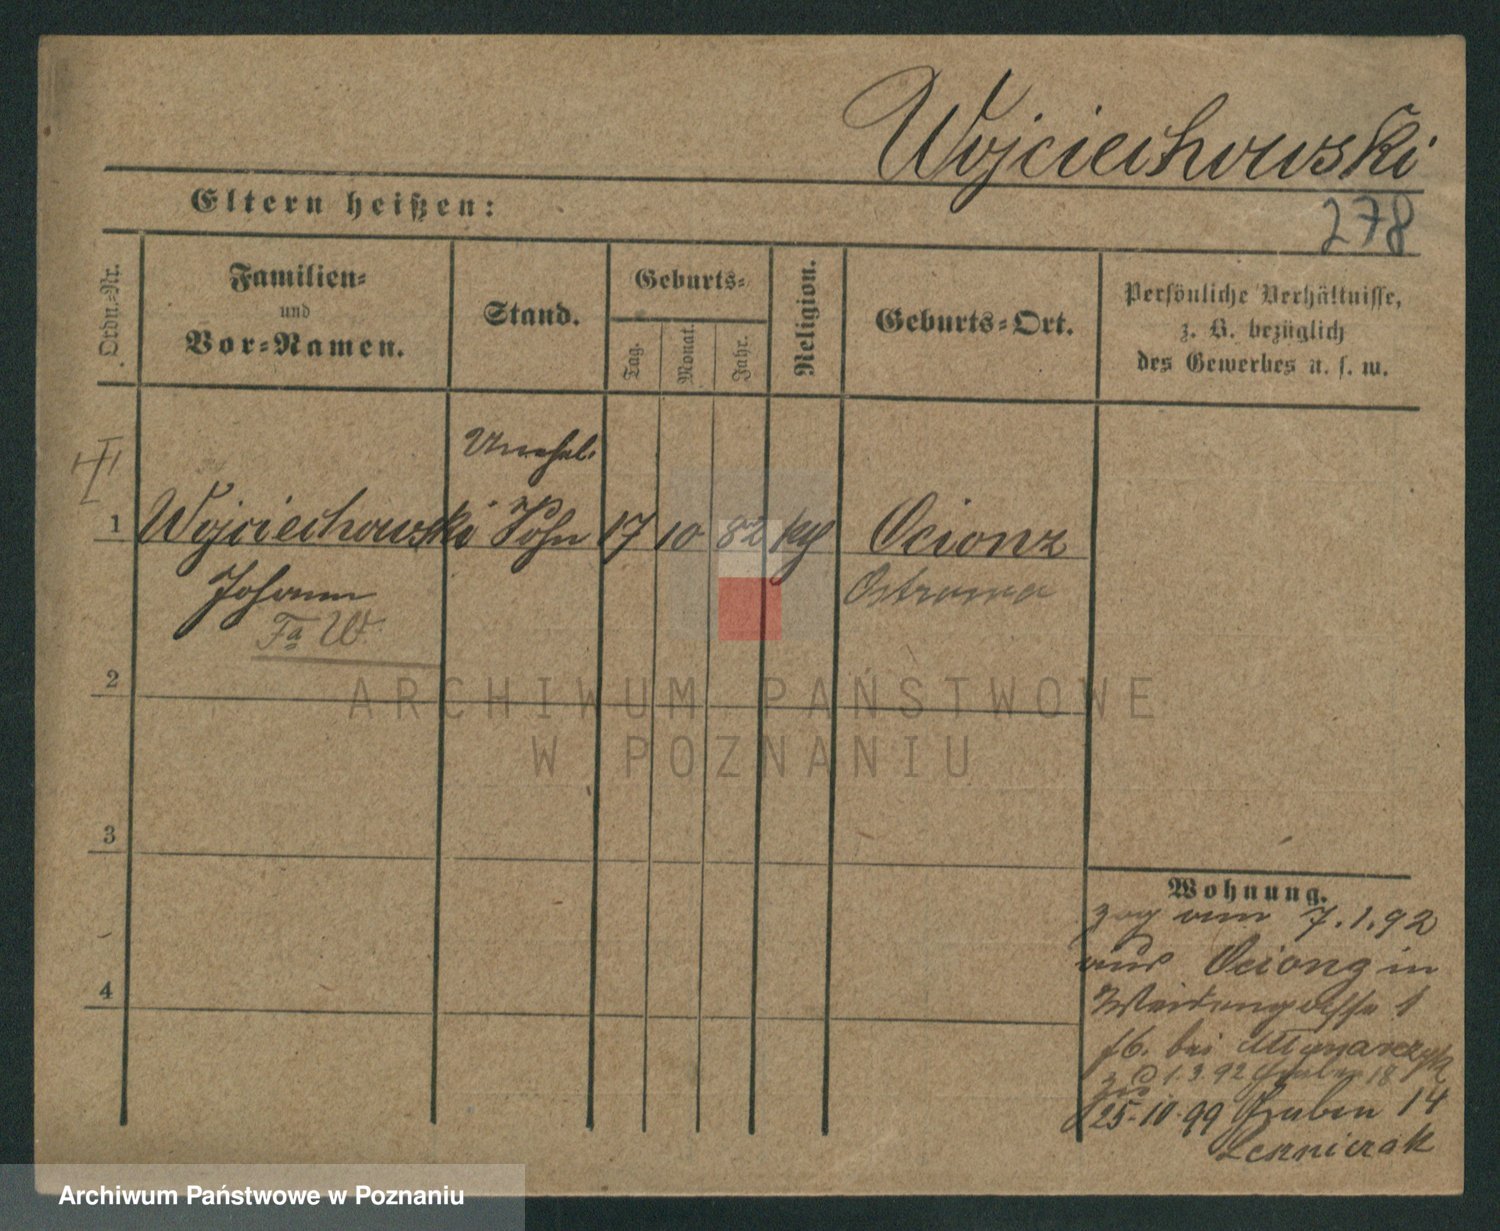 Wojciechowski
Eltern heißen:
278
Ordn.-Nr.
Familien-
und
Vor-Namen.
Stand.
Geburts-
Tag.
Monat.
Jahr.
Religion.
Geburts-Ort.
Persönliche Verhältnisse,
z. B. bezüglich
des Gewerbes u. s. w.
Unehel.
1 Wojciechowski Sohn 17 10 82 kth Ocionz
Johann
Ostrowo
Fa W
2
ARCHIWUM PAŃSTWOWE
W POZNANIU
3
4
Wohnung.
zog am 7.1.92
aus Ocionz in
Weidengasse 1
bei Mlynarczyk
1.3.92 Graben 18
25.10.99 Graben 14
Lesnierak
Archiwum Państwowe w Poznaniu